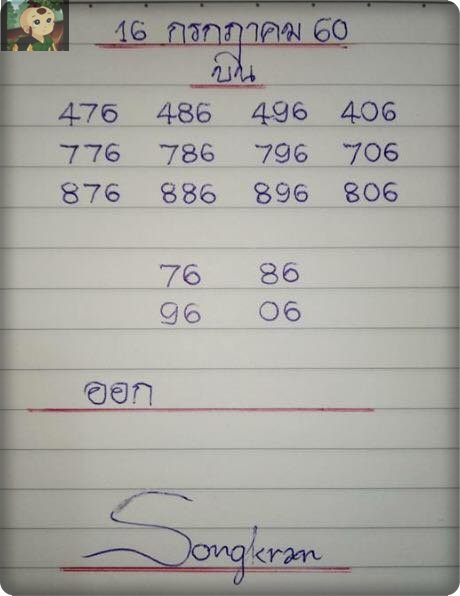 16 กรกฎาคม 60
บน
476 486 496 406
776 786 796 706
876 886 896 806
76 86
96 06
ออก
Songkran